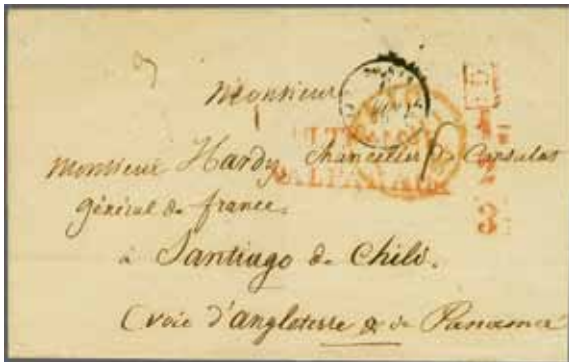 Monsieur
Monsieur Hardy Chancellier du Consulat
général de france,
à Santiago de Chili.
(voie d'angleterre & de Panama